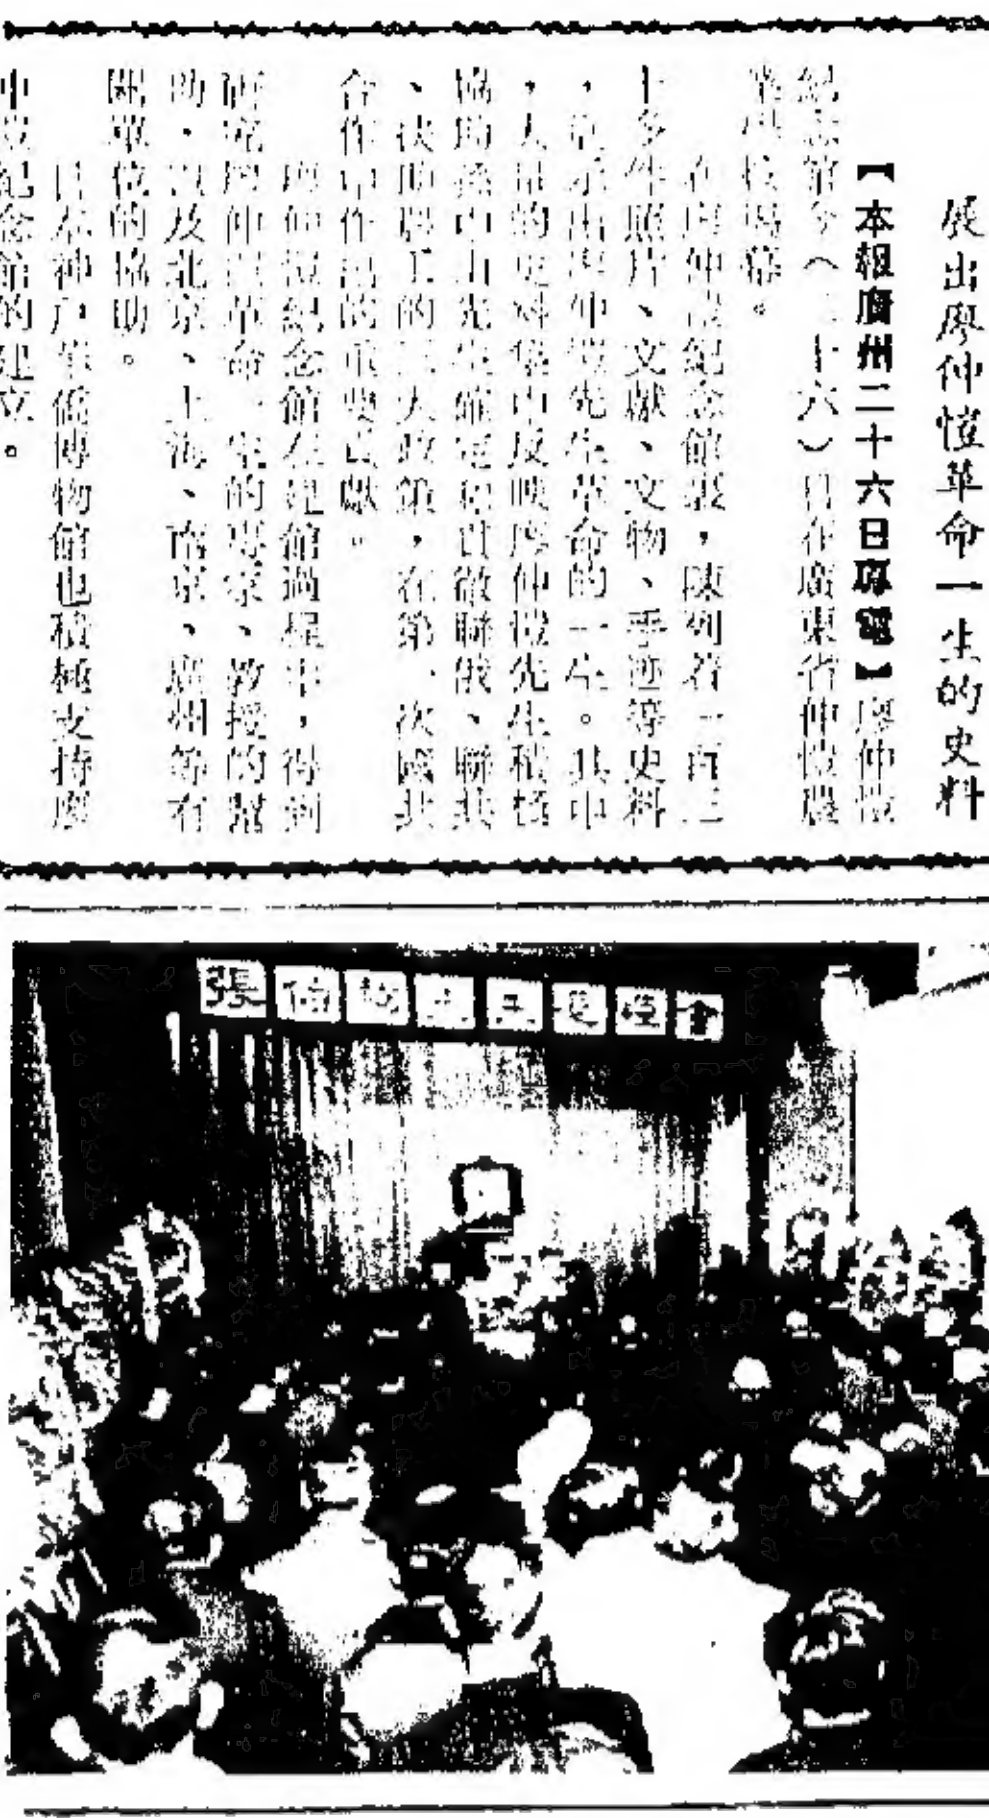 展出廖仲愷革命一生的史料
【本報廣州二十六日專電】廖仲愷
紀念館今（二十六）日在廣東省仲愷農
業學校揭幕。
在廖仲愷紀念館裏，陳列着一百三
十多件照片、文獻、文物、手迹等史料
，展示出廖仲愷先生革命的一生。其中
，大量的史料集中反映廖仲愷先生積極
協助孫中山先生確定並貫徹聯俄、聯共
、扶助農工的三大政策，在第一次國共
合作中作出的重要貢獻。
廖仲愷紀念館在建館過程中，得到
研究廖仲愷革命一生的專家、教授的幫
助，以及北京、上海、南京、廣州等有
關單位的協助。
日本神戶華僑博物館也積極支持廖
仲愷紀念館的建立。
張 會